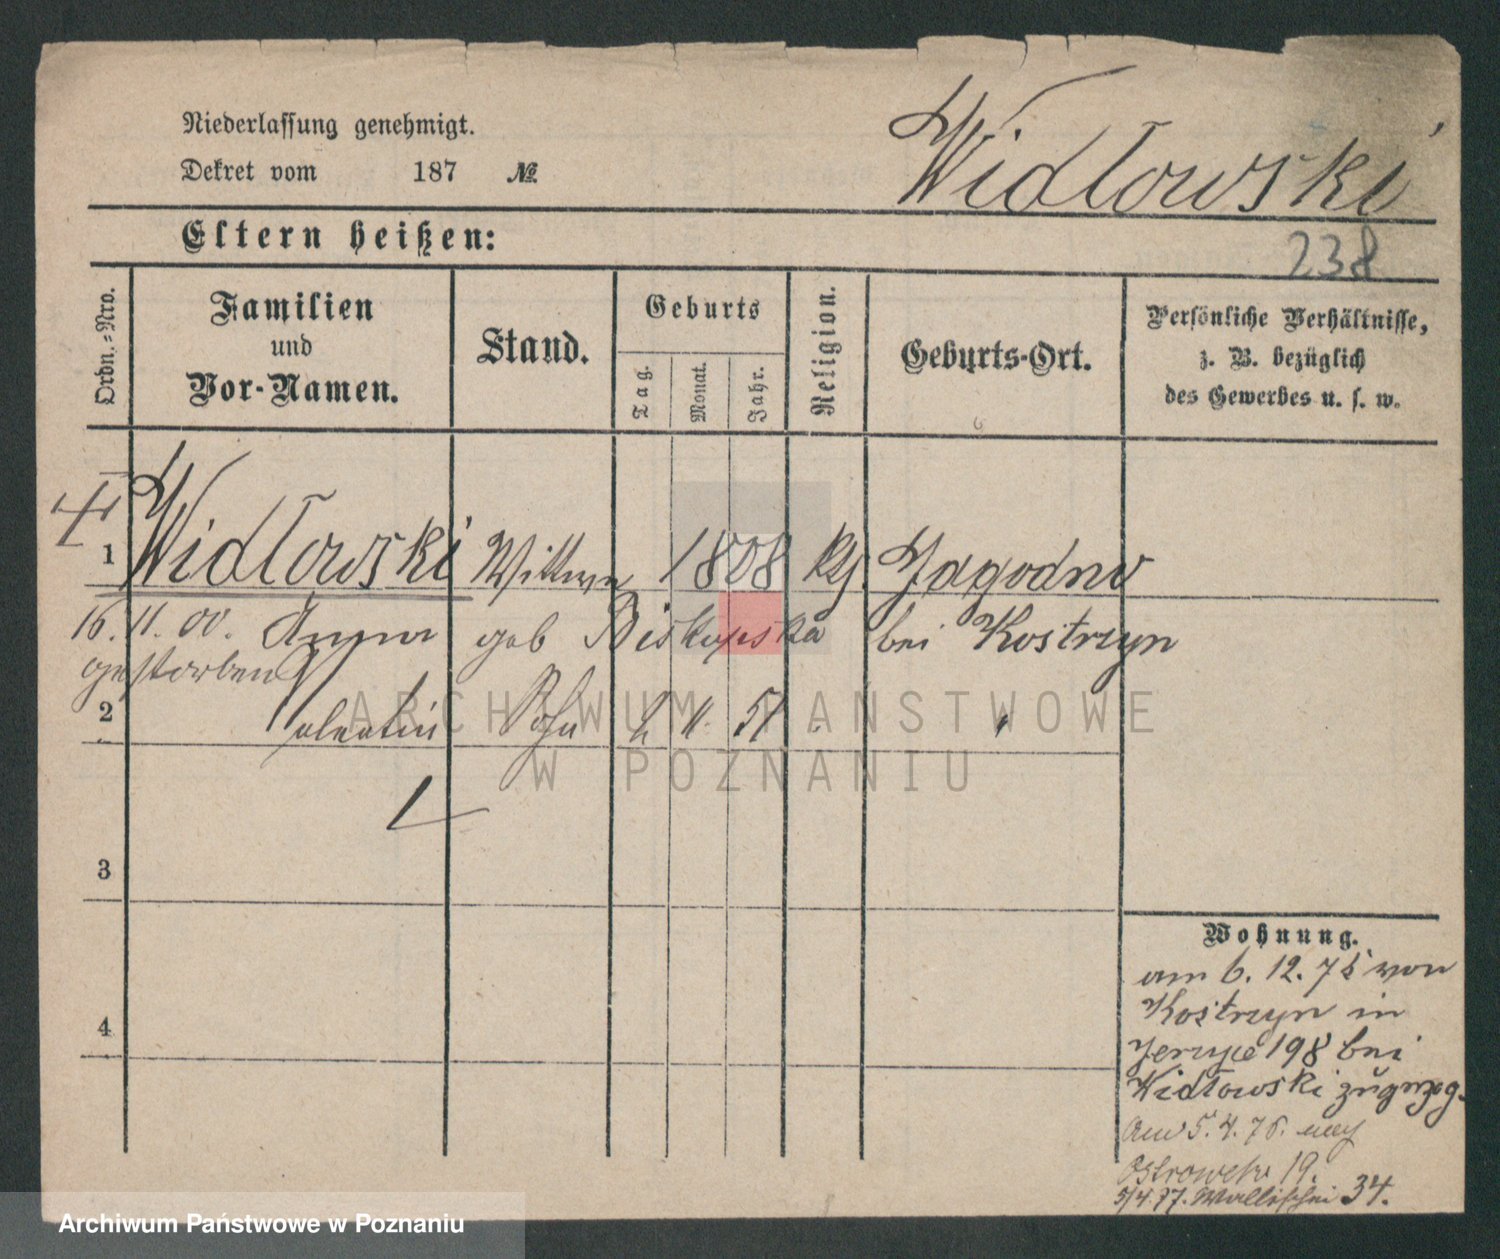 Niederlassung genehmigt.
Dekret vom 187 №
Widłowski
Eltern heißen:
238
Ordn.-Nro.
Familien
und
Vor-Namen.
Stand.
Geburts
Tag.
Monat.
Jahr.
Religion.
Geburts-Ort.
Persönliche Verhältnisse,
z. B. bezüglich
des Gewerbes u. s. w.
1 Widłowski Wittwe 1808 kth. Jagodno
16.11.00. Anna geb Biskupska bei Kostrzyn
gestorben
2 Valentin Sohn 2 11. 51 " "
ARCHIWUM PAŃSTWOWE
W POZNANIU
3
4
Wohnung.
am 6. 12. 75 von
Kostrzyn in
198 bei
Widłowski zugezog.
Am 5. 4. 76. nach
Ostrowek 19.
5/4.77. Wallischei 34.
Archiwum Państwowe w Poznaniu